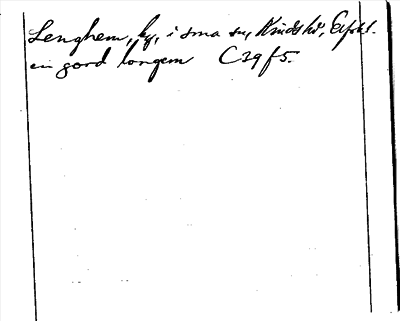 Lenghem, by, i sma sn, Kinds hd, Elfsbl.
en gord longem C29 f5.